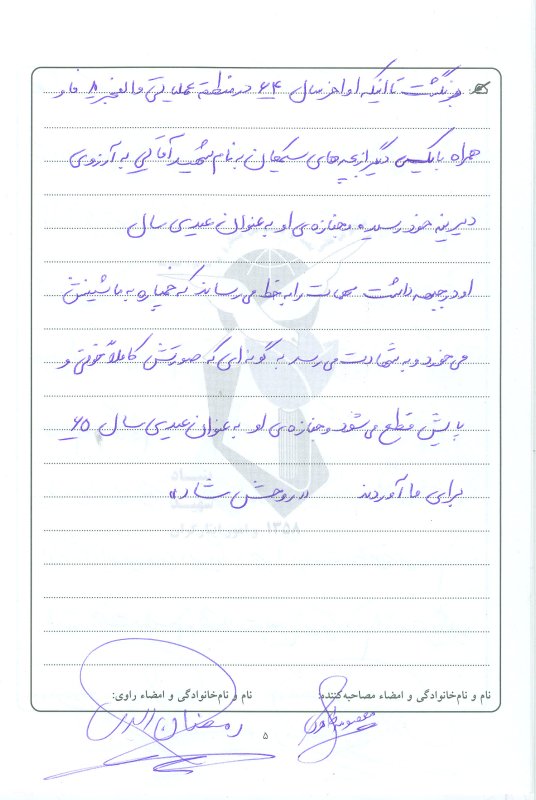 برنگشت تا اینکه اواخر سال ۶۴ در منطقه عملیاتی والفجر ۸ فاو
همراه با یکی دیگر از بچه‌های سمعجان به نام شهید آقائی به آرزوی
دیرینه خود رسیده و جنازه‌ی او به عنوان عیدی سال
او در جبهه داشت مهمات را به خط می‌رساند که خمپاره به ماشینش
می‌خورد و به شهادت می‌رسد به گونه‌ای که صورتش کاملاً خونی و
پایش قطع می‌شود و جنازه‌ی او به عنوان عیدی سال ۶۵
برای ما آوردند «روحش شاد»
بنیاد
شهید
و امور ایثارگران
۱۳۵۸
نام و نام‌خانوادگی و امضاء مصاحبه‌کننده:
نام و نام‌خانوادگی و امضاء راوی:
رمضان
۵